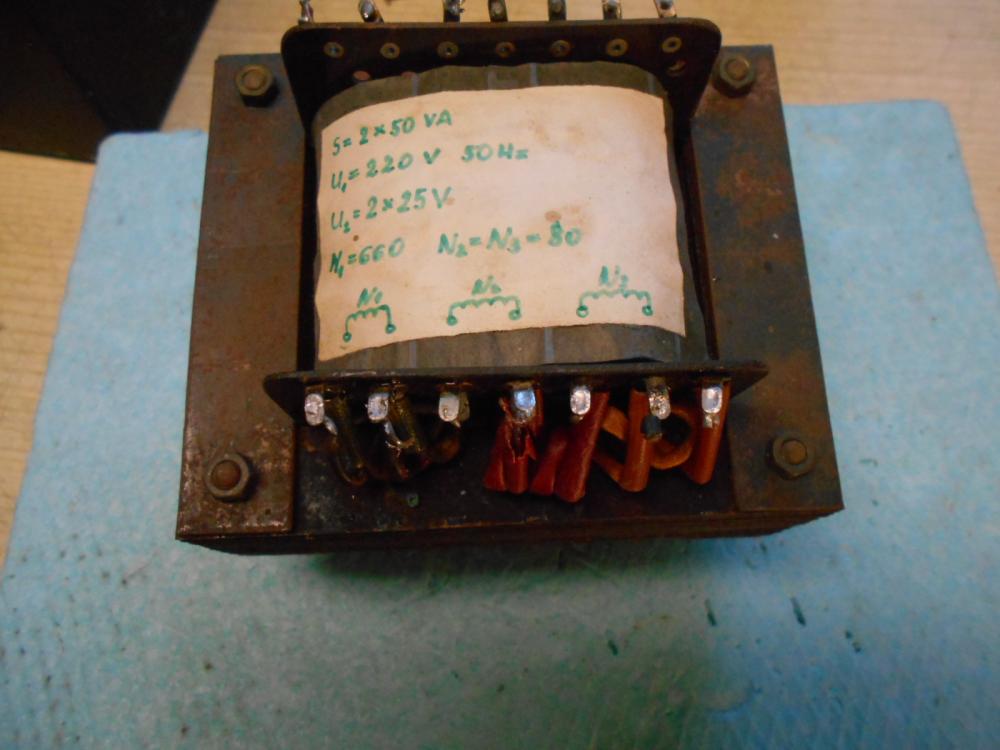 S = 2 × 50 VA
U₁ = 220 V 50 Hz
U₂ = 2 × 25 V
N₁ = 660 N₂ = N₃ = 80
N₁ N₂ N₃